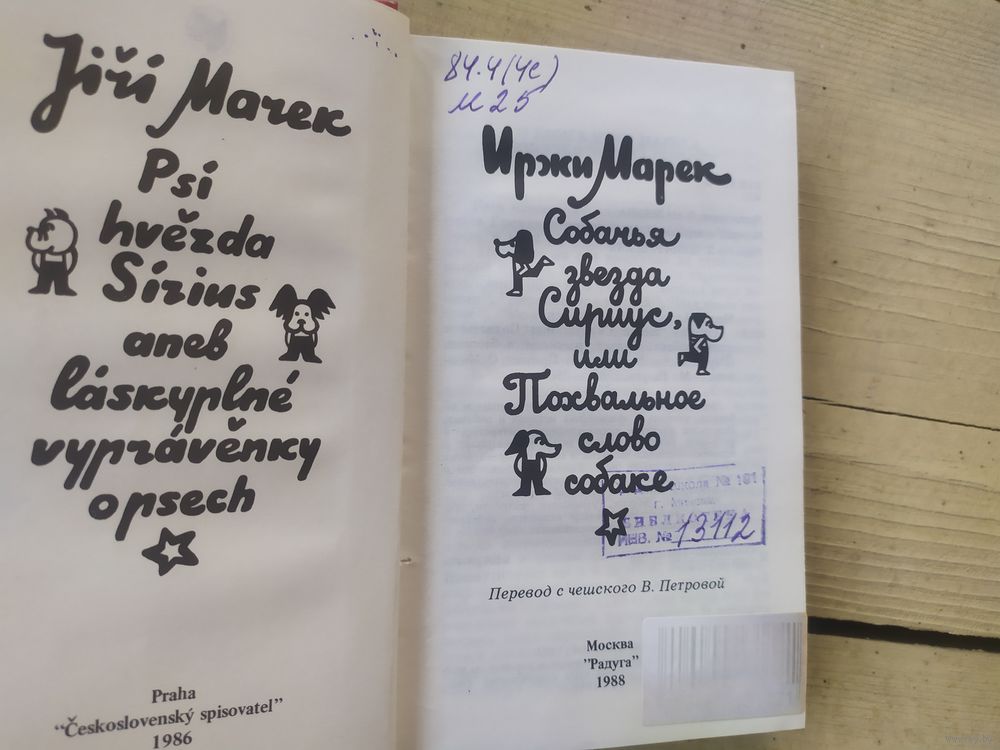 Jiří Marek
Psí
hvězda
Sírius
aneb
láskyplné
vyprávěnky
o psech
Praha
“Československý spisovatel”
1986
84.4(Че)
М 25
Иржи Марек
Собачья
звезда
Сириус,
или
Похвальное
слово
собаке
школа № 191
г.
БИБЛИОТЕКА
ИНВ. № 13112
Перевод с чешского В. Петровой
Москва
”Радуга”
1988